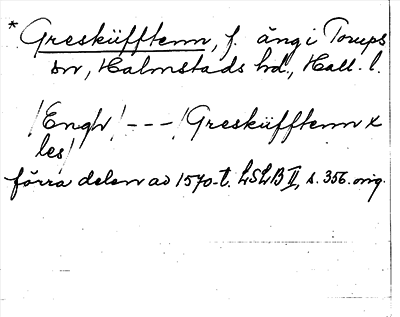 * Gresküfftenn, f. äng i Torups
sn, Halmstads hd., Hall. l.
/Engh/ --- /Gresküfftenn x
les/
förra delen av 1570-t. LSLB II, s. 356. orig.